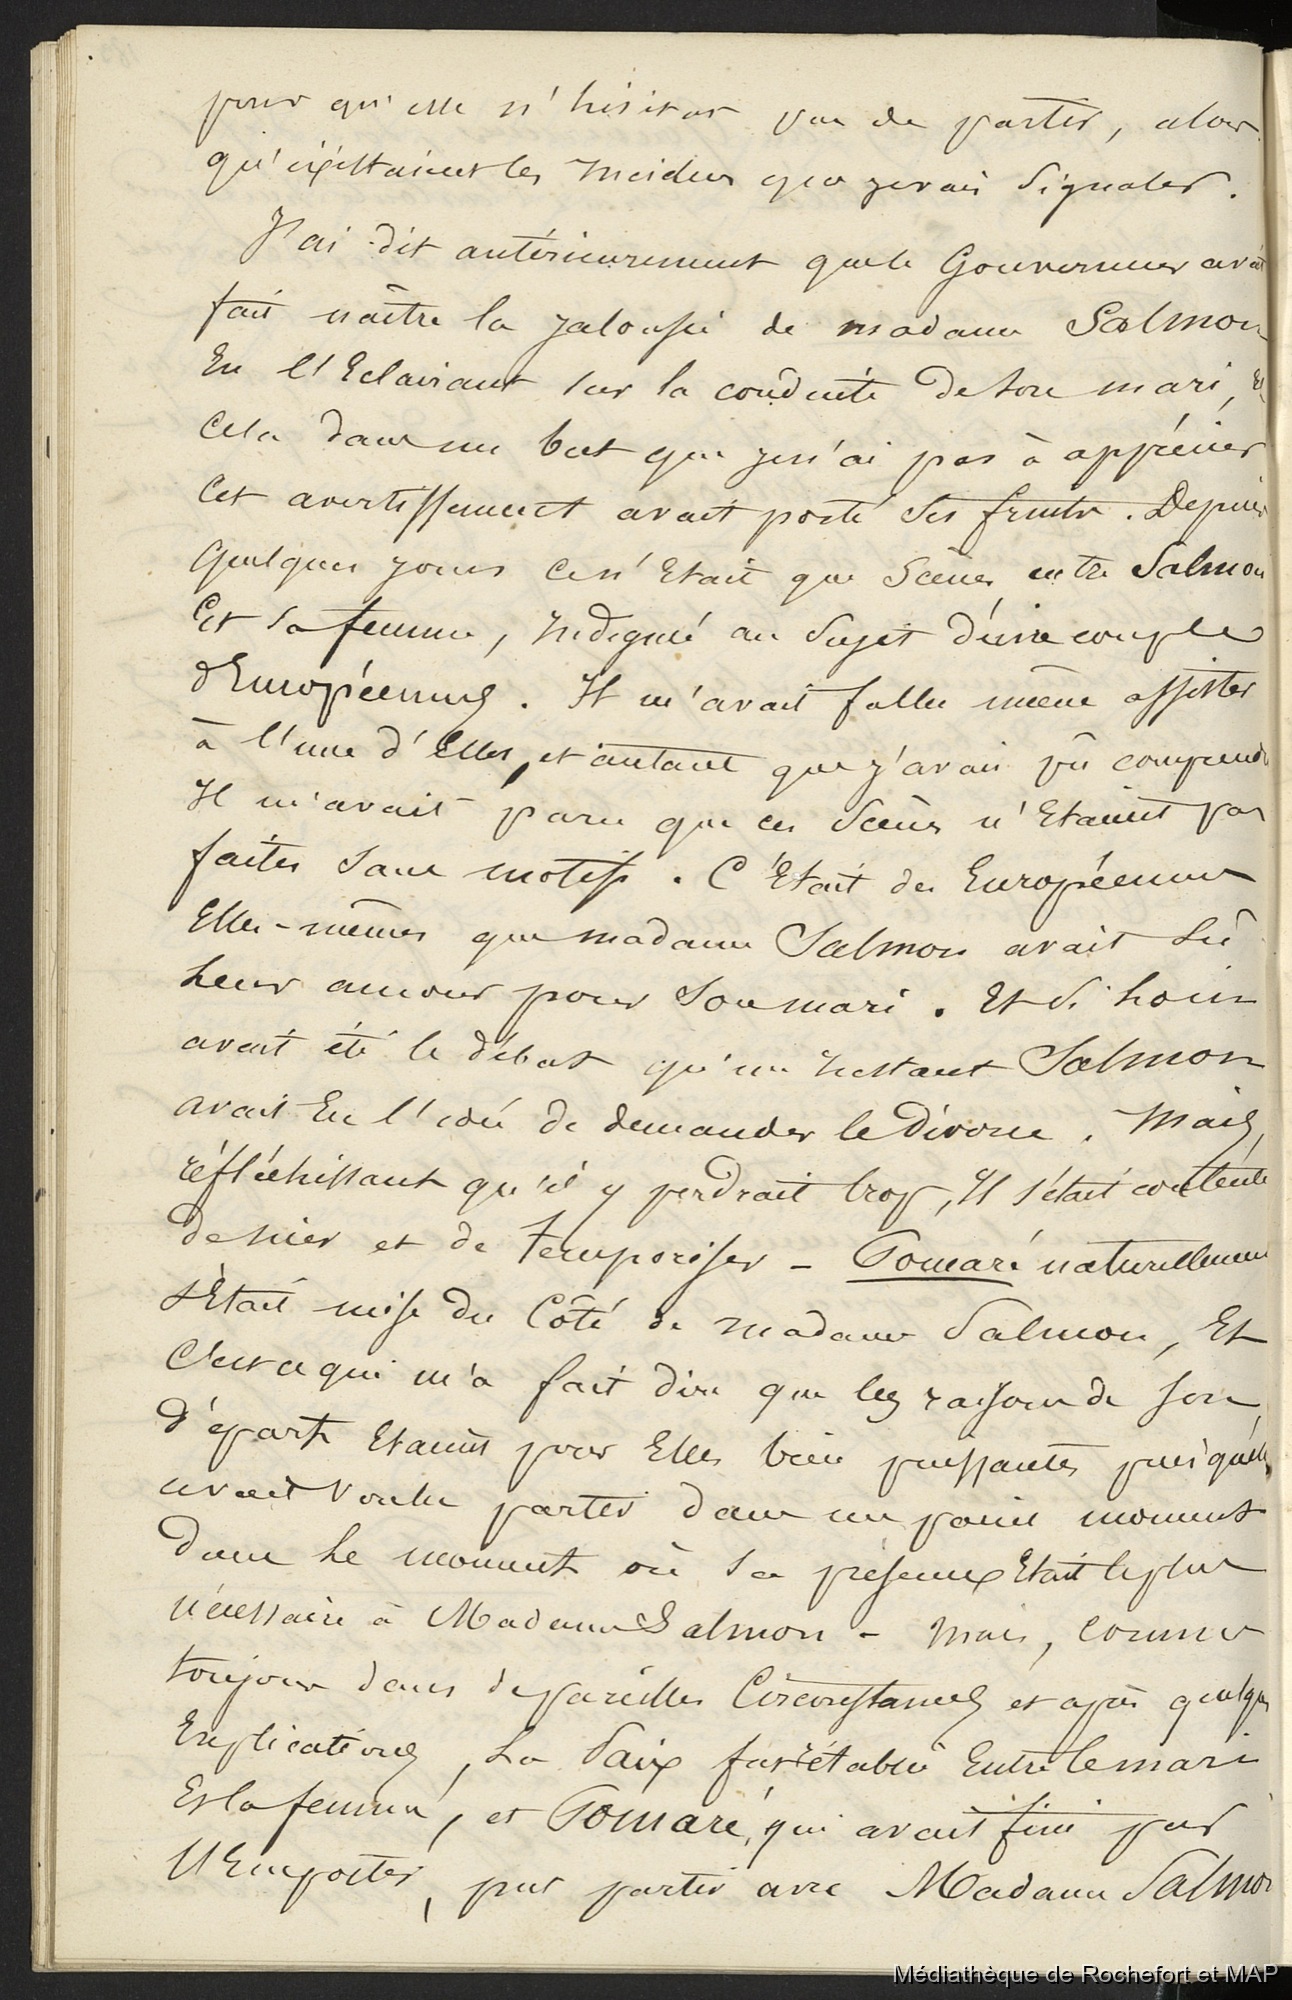 pour qu'elle n'hésitat pas de partir, alors
qu'existaient les incidens que je vais signaler.
J'ai dit antérieurement que le Gouverneur avait
fait naître la jalousie de madame Salmon
En l'Eclairant sur la conduite de son mari, Et
Cela dans un but que je n'ai pas à apprécier
Cet avertissement avait porté ses fruits. Depuis
quelques jours ce n'Etait que Scènes entre Salmon
Et sa femme, indigné au sujet d'une couple
d'Européennes. Il m'avait fallu même assister
à l'une d'elles, et autant que j'avais pû comprendre
Il m'avait paru que ces Scènes n'Etaient pas
faites sans motifs. C'Etait des Européennes
Elles-mêmes que madame Salmon avait sû
leur amour pour son mari. Et si loin
avait été le débat qu'un instant Salmon
avait Eu l'idée de demander le Divorce. Mais,
réfléchissant qu'il y perdrait trop, Il s'était contenté
de nier et de temporiser - Pomaré naturellement
s'Etait mise du Côté de madame Salmon, Et
C'est ce qui m'a fait dire que les raisons de son
départ Etaient pour Elles bien puissantes puisqu'elle
avait voulu partir dans un pareil moment
dans le moment où sa présence Etait le plus
nécessaire à Madame Salmon - Mais, comme
toujours dans de pareilles Circonstances et après quelques
Explications, la Paix fut rétablie Entre le mari
Et la femme, et Pomaré, qui avait fini par
l'Emporter, put partir avec Madame Salmon
Médiathèque de Rochefort et MAP